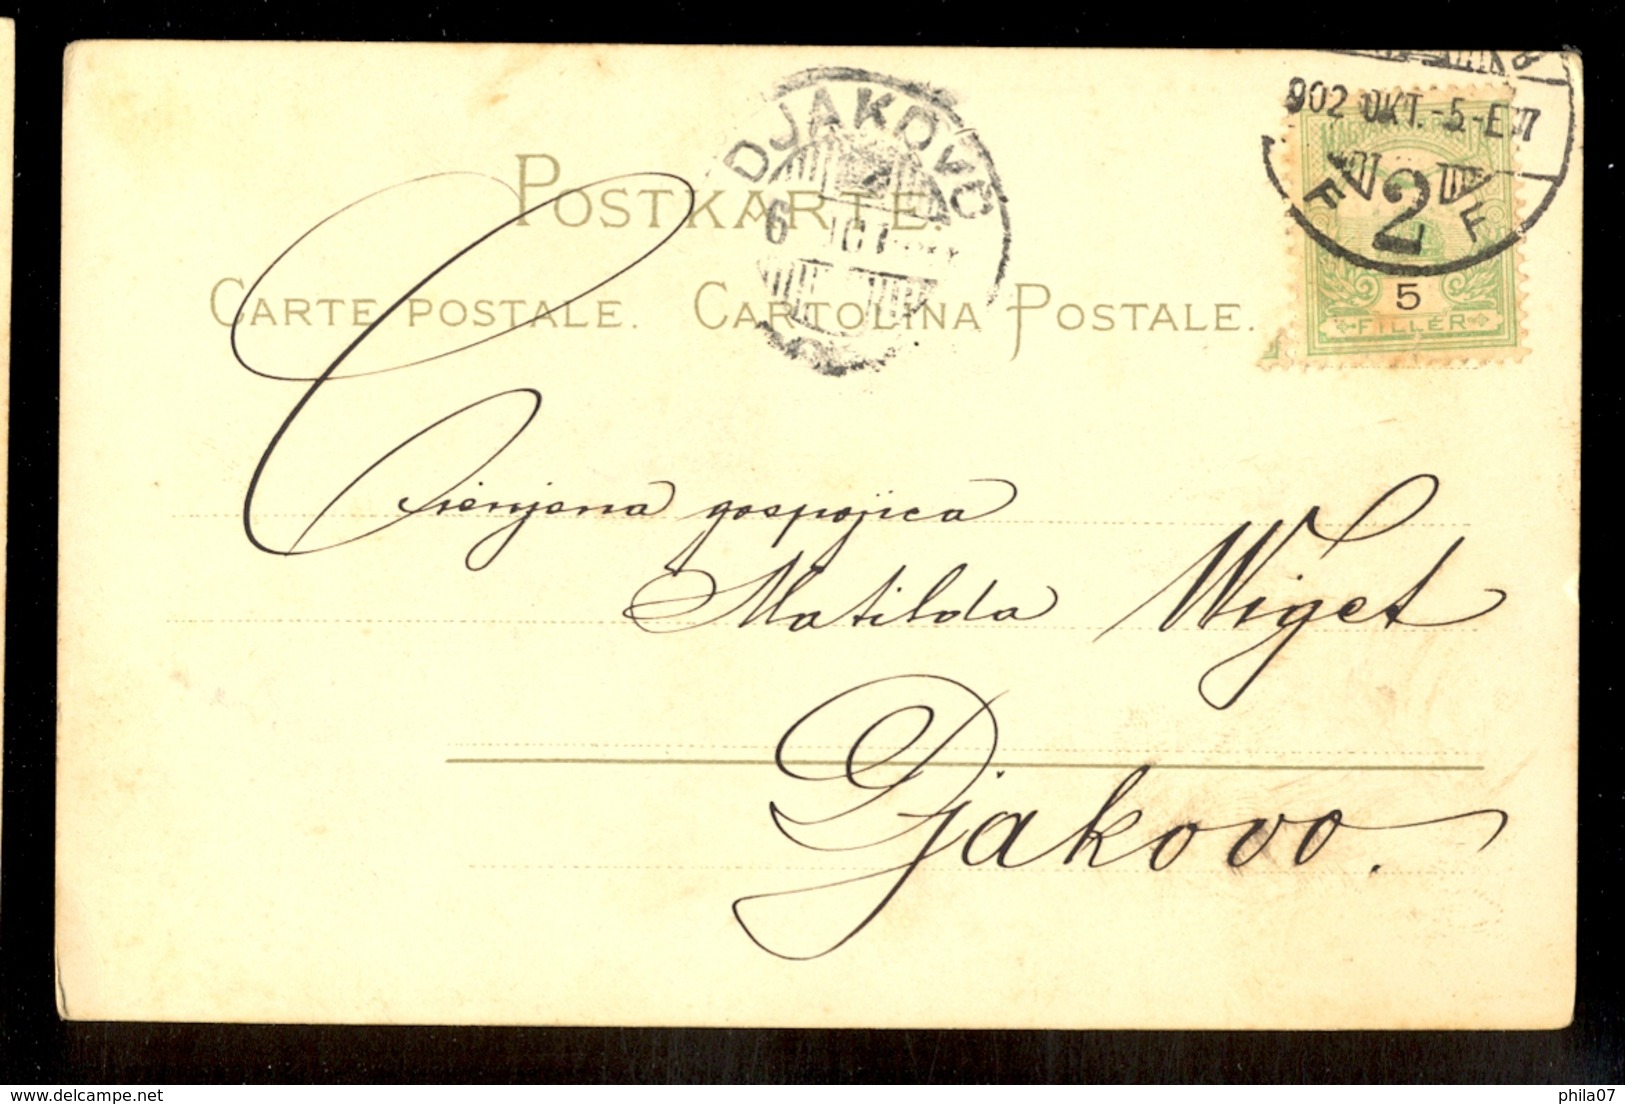 902 OKT.-5.-E 7
F 2 F
5
FILLÉR
DJAKOVO
6
POSTKARTE.
CARTE POSTALE. CARTOLINA POSTALE.
Cienjena gospojica
Matilda Wiget
Djakovo.
phila07